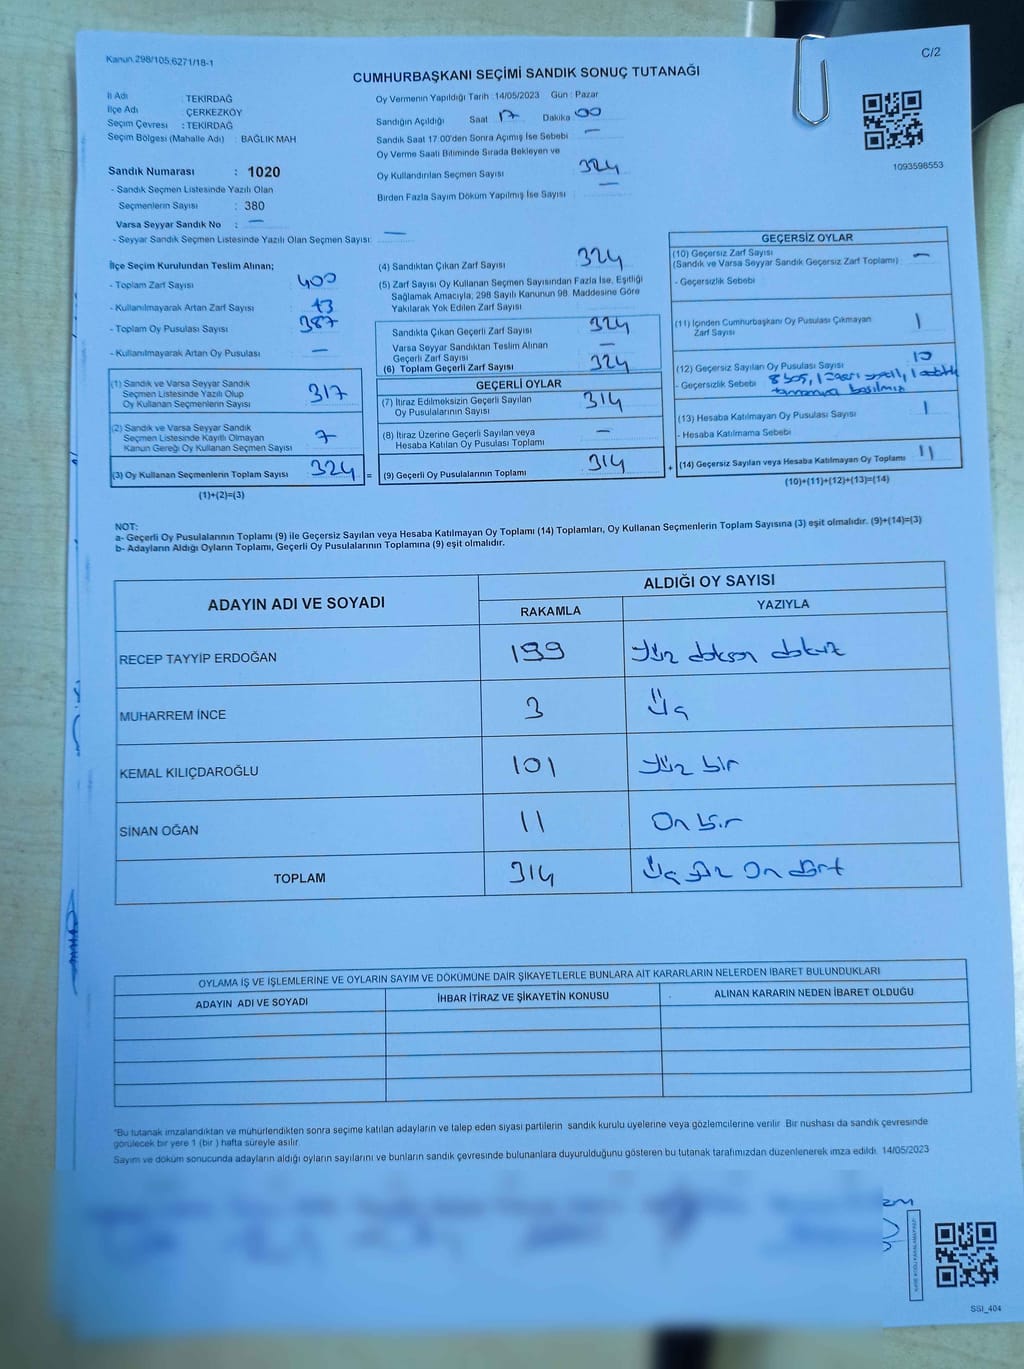 Kanun.298/105,6271/18-1
C/2
CUMHURBAŞKANI SEÇİMİ SANDIK SONUÇ TUTANAĞI
İl Adı : TEKİRDAĞ
İlçe Adı : ÇERKEZKÖY
Seçim Çevresi : TEKİRDAĞ
Seçim Bölgesi (Mahalle Adı) : BAĞLIK MAH
Sandık Numarası : 1020
- Sandık Seçmen Listesinde Yazılı Olan
Seçmenlerin Sayısı : 380
Varsa Seyyar Sandık No : —
- Seyyar Sandık Seçmen Listesinde Yazılı Olan Seçmen Sayısı: —
Oy Vermenin Yapıldığı Tarih : 14/05/2023 Gün : Pazar
Sandığın Açıldığı Saat 17 Dakika 00
Sandık Saat 17:00'den Sonra Açımış İse Sebebi —
Oy Verme Saati Bitiminde Sırada Bekleyen ve
Oy Kullandırılan Seçmen Sayısı 324
Birden Fazla Sayım Döküm Yapılmış İse Sayısı —
1093598553
İlçe Seçim Kurulundan Teslim Alınan;
- Toplam Zarf Sayısı 400
- Kullanılmayarak Artan Zarf Sayısı 13
- Toplam Oy Pusulası Sayısı 387
- Kullanılmayarak Artan Oy Pusulası —
(1) Sandık ve Varsa Seyyar Sandık
Seçmen Listesinde Yazılı Olup
Oy Kullanan Seçmenlerin Sayısı 317
(2) Sandık ve Varsa Seyyar Sandık
Seçmen Listesinde Kayıtlı Olmayan
Kanun Gereği Oy Kullanan Seçmen Sayısı 7
(3) Oy Kullanan Seçmenlerin Toplam Sayısı 324 =
(1)+(2)=(3)
(4) Sandıktan Çıkan Zarf Sayısı 324
(5) Zarf Sayısı Oy Kullanan Seçmen Sayısından Fazla İse, Eşitliği
Sağlamak Amacıyla; 298 Sayılı Kanunun 98. Maddesine Göre
Yakılarak Yok Edilen Zarf Sayısı
Sandıkta Çıkan Geçerli Zarf Sayısı 324
Varsa Seyyar Sandıktan Teslim Alınan
Geçerli Zarf Sayısı —
(6) Toplam Geçerli Zarf Sayısı 324
GEÇERLİ OYLAR
(7) İtiraz Edilmeksizin Geçerli Sayılan
Oy Pusulalarının Sayısı 314
(8) İtiraz Üzerine Geçerli Sayılan veya
Hesaba Katılan Oy Pusulası Toplamı —
(9) Geçerli Oy Pusulalarının Toplamı 314 +
GEÇERSİZ OYLAR
(10) Geçersiz Zarf Sayısı
(Sandık ve Varsa Seyyar Sandık Geçersiz Zarf Toplamı) —
- Geçersizlik Sebebi
(11) İçinden Cumhurbaşkanı Oy Pusulası Çıkmayan
Zarf Sayısı 1
(12) Geçersiz Sayılan Oy Pusulası Sayısı 10
- Geçersizlik Sebebi 8 boş, 1
basılmış
(13) Hesaba Katılmayan Oy Pusulası Sayısı 1
- Hesaba Katılmama Sebebi
(14) Geçersiz Sayılan veya Hesaba Katılmayan Oy Toplamı 11
(10)+(11)+(12)+(13)=(14)
NOT:
a- Geçerli Oy Pusulalarının Toplamı (9) ile Geçersiz Sayılan veya Hesaba Katılmayan Oy Toplamı (14) Toplamları, Oy Kullanan Seçmenlerin Toplam Sayısına (3) eşit olmalıdır. (9)+(14)=(3)
b- Adayların Aldığı Oyların Toplamı, Geçerli Oy Pusulalarının Toplamına (9) eşit olmalıdır.
ADAYIN ADI VE SOYADI
ALDIĞI OY SAYISI
RAKAMLA YAZIYLA
RECEP TAYYİP ERDOĞAN 199 Yüz doksan dokuz
MUHARREM İNCE 3 Üç
KEMAL KILIÇDAROĞLU 101 Yüz bir
SİNAN OĞAN 11 On bir
TOPLAM 314 Üç Yüz On dört
OYLAMA İŞ VE İŞLEMLERİNE VE OYLARIN SAYIM VE DÖKÜMÜNE DAİR ŞİKAYETLERLE BUNLARA AİT KARARLARIN NELERDEN İBARET BULUNDUKLARI
ADAYIN ADI VE SOYADI İHBAR İTİRAZ VE ŞİKAYETİN KONUSU ALINAN KARARIN NEDEN İBARET OLDUĞU
"Bu tutanak imzalandıktan ve mühürlendikten sonra seçime katılan adayların ve talep eden siyasi partilerin sandık kurulu üyelerine veya gözlemcilerine verilir. Bir nüshası da sandık çevresinde
görülecek bir yere 1 (bir) hafta süreyle asılır.
Sayım ve döküm sonucunda adayların aldığı oyların sayılarını ve bunların sandık çevresinde bulunanlara duyurulduğunu gösteren bu tutanak tarafımızdan düzenlenerek imza edildi. 14/05/2023
SSI_404